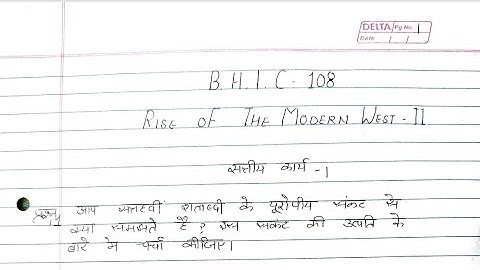 DELTA Pg No. 1
Date / /
B.H.I.C-108
RISE OF THE MODERN WEST-II
सत्रीय कार्य -1
प्रश्न1 आप सत्रहवीं शताब्दी के यूरोपीय संकट से
क्या समझते है? इस संकट की उत्पति के
बारे मे चर्चा कीजिए।